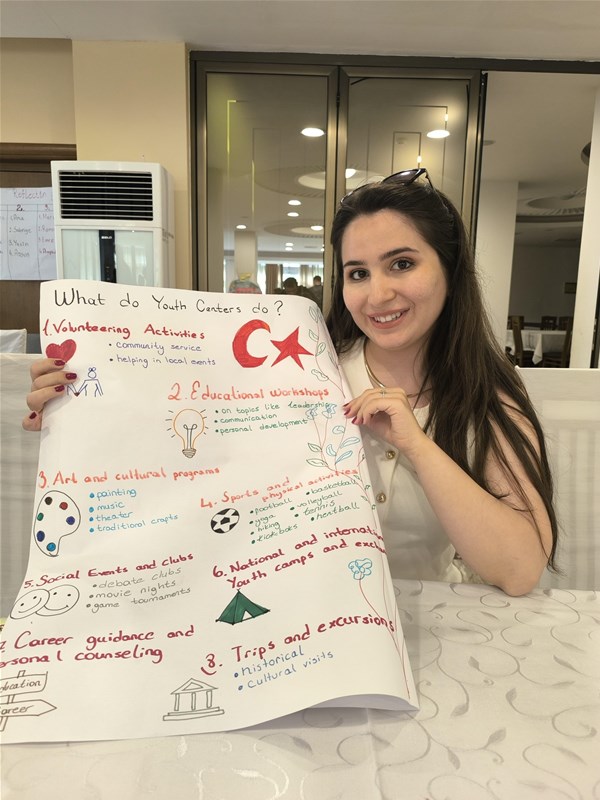 Reflectie
What do Youth Centers do?
1. Volunteering Activities
• community service
• helping in local events
2. Educational workshops
• on topics like leadership
• communication
• personal development
3. Art and cultural programs
• painting
• music
• theater
• traditional crafts
4. Sports and
physical activities
• football
• basketball
• yoga
• volleyball
• hiking
• tennis
• netball
5. Social Events and clubs
• debate clubs
• movie nights
• game tournaments
6. National and
Youth camps and
Career guidance and
counseling
career
8. Trips and excursions
• historical
• cultural visits